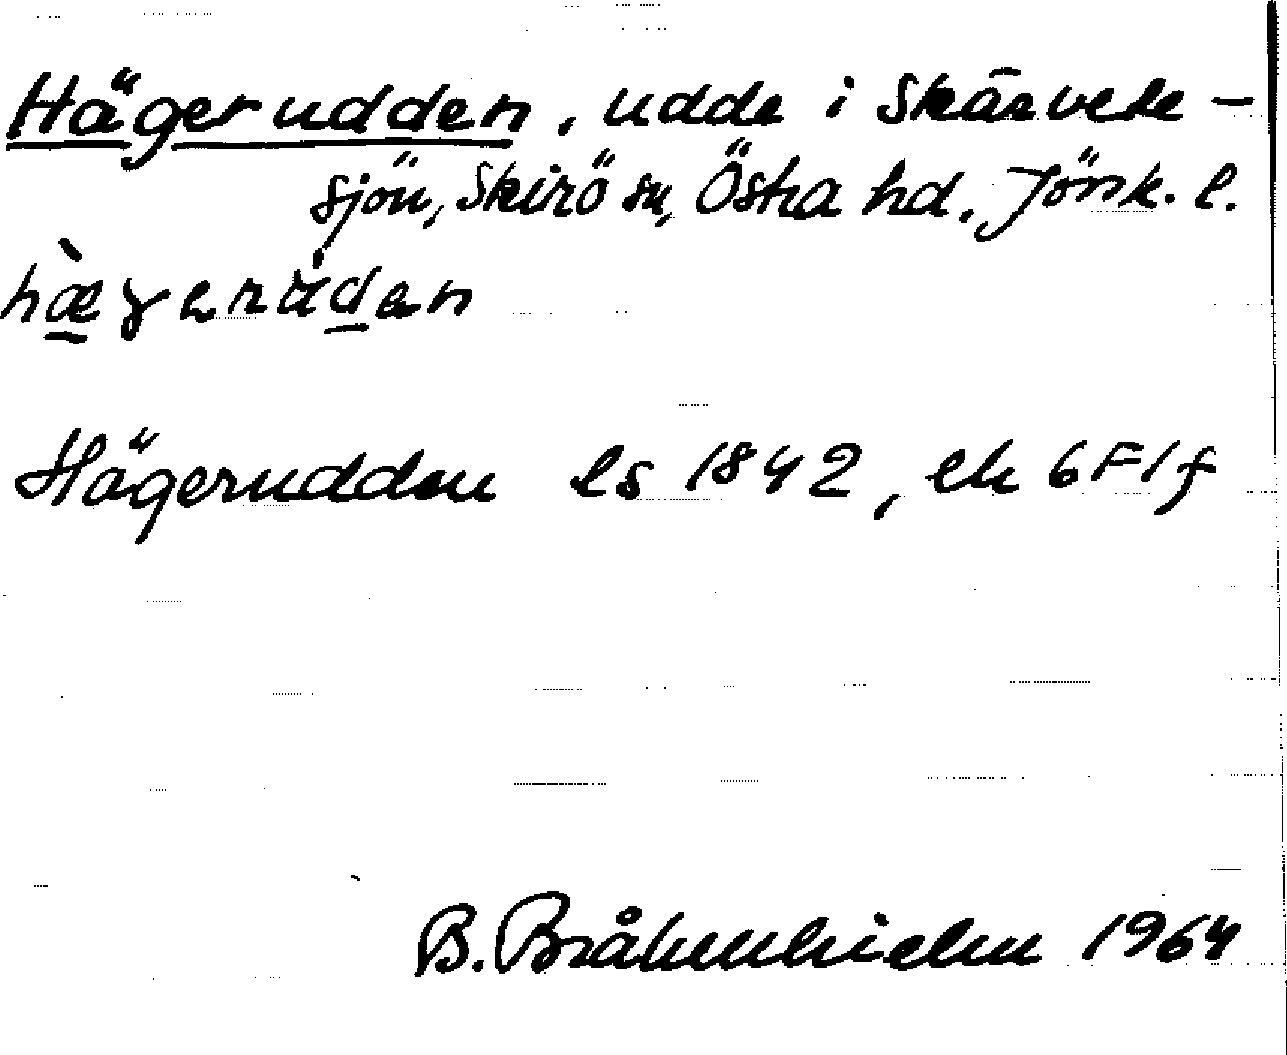 Hägerudden, udde i Skärvete-
sjön, Skirö sn, Östra hd. Jönk. l.
hæ̀ɣerùden
Hägerudden ls 1842, ek 6F1f
B. Bråkenhielm 1964